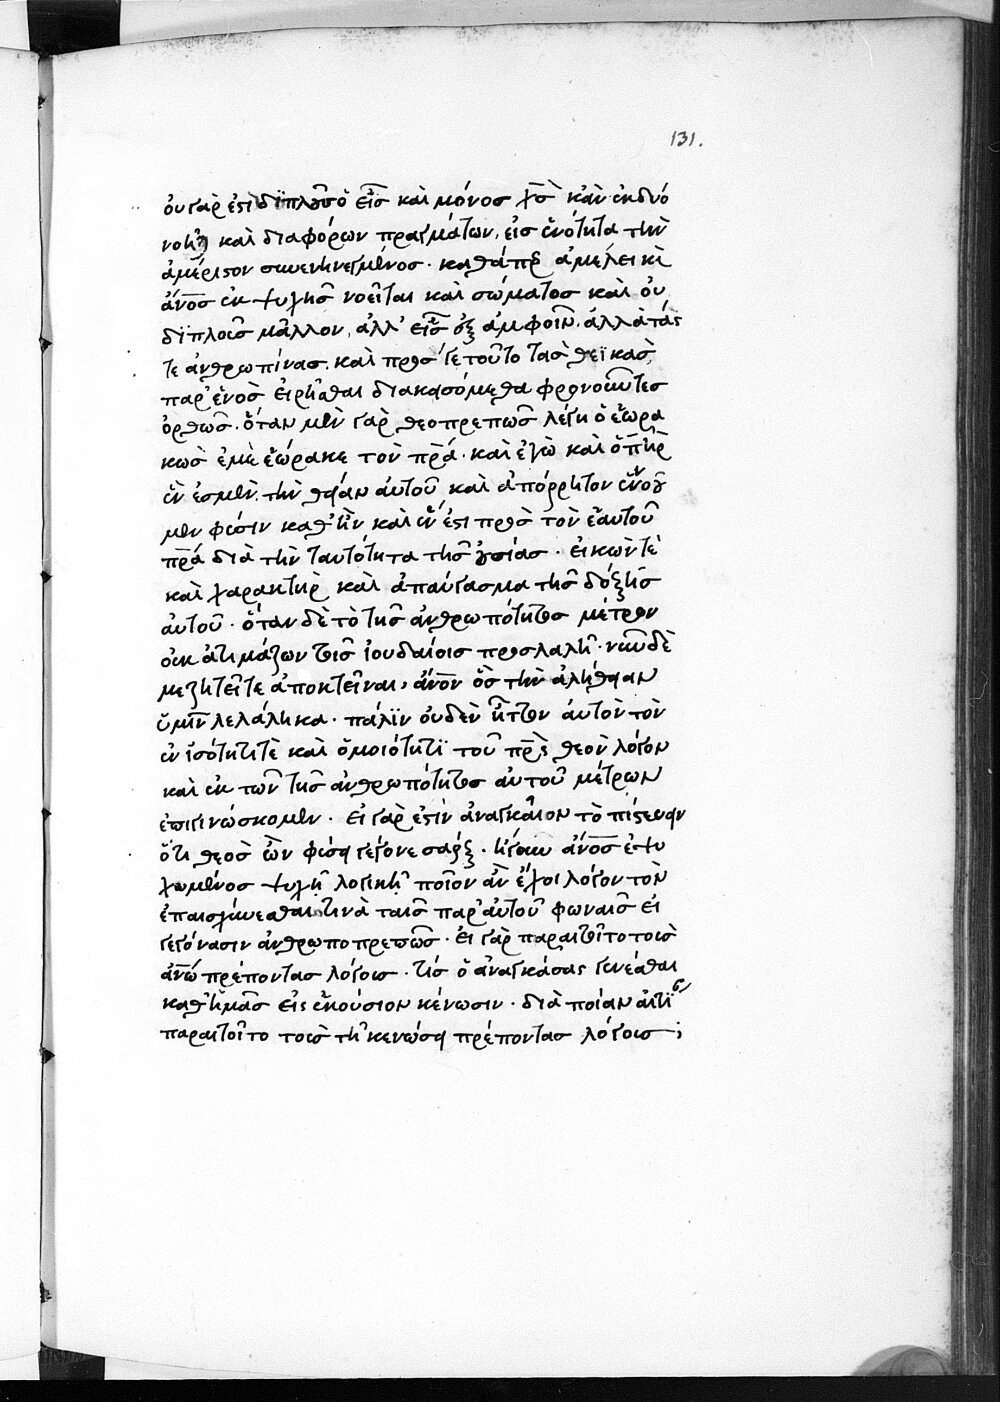 131.
οὐ γάρ ἐστι διπλοῦς ὁ εἷς καὶ μόνος χ̅ς̅ κἂν ἐκ δύο
νοῆται καὶ διαφόρων πραγμάτων, εἰς ἑνότητα τὴν
ἀμέριστον συνενηνεγμένος · καθάπερ ἀμέλει καὶ
ἄν̅ο̅ς̅ ἐκ ψυχῆς νοεῖται καὶ σώματος καὶ οὐ
διπλοῦς μᾶλλον, ἀλλ' εἷς ἐξ ἀμφοῖν · ἀλλὰ τάς
τε ἀνθρωπίνας, καὶ πρός γε τοῦτο τὰς θεϊκὰς,
παρ' ἑνὸς εἰρῆσθαι διακεισόμεθα φρονοῦντες
ὀρθῶς · ὅταν μὲν γὰρ θεοπρεπῶς λέγη ὁ ἑωρα
κὼς ἐμὲ ἑώρακε τὸν π̅ρ̅α̅ · καὶ ἐγὼ καὶ ὁ π̅η̅ρ̅
ἕν ἐσμεν · τὴν θείαν αὐτοῦ καὶ ἀπόρρητον ἐννοοῦ
μεν φύσιν καθ' ἣν καὶ ἕν ἐστι πρὸς τὸν ἑαυτοῦ
π̅ρ̅α̅ διὰ τὴν ταυτότητα τῆς οὐσίας · εἰκών τὲ
καὶ χαρακτὴρ καὶ ἀπαύγασμα τῆς δόξης
αὐτοῦ · ὅταν δὲ τὸ τῆς ἀνθρωπότητος μέτρον
οὐκ ἀτιμάζων τοῖς ἰουδαίοις προσλαλῆ · νῦν δὲ
με ζητεῖτε ἀποκτεῖναι, ἄν̅ο̅ν̅ ὃς τὴν ἀλήθειαν
ὑμῖν λελάληκα · πάλιν οὐδὲν ἧττον αὐτὸν τὸν
ἐν ἰσότητί τὲ καὶ ὁμοιότητι τοῦ π̅ρ̅ς̅ θεὸν λόγον
καὶ ἐκ τῶν τῆς ἀνθρωπότητος αὐτοῦ μέτρων
ἐπιγινώσκομεν · εἰ γάρ ἐστιν ἀναγκαῖον τὸ πιστεύειν
ὅτι θεὸς ὢν φύσει γέγονε σάρξ · ἤγουν ἄν̅ο̅ς̅ ἐψυ
χωμένος ψυχῆ λογικῆ ποῖον ἂν ἔχοι λόγον τὸν
ἐπαισχύνεσθαι τινὰ ταῖς παρ' αὐτοῦ φωναῖς εἰ
γεγόνασιν ἀνθρωποπρεπῶς · εἰ γὰρ παραιτοῖτο τοὺς
ἀ̅ν̅ω̅ πρέποντας λόγους · τίς ὁ ἀναγκάσας γενέσθαι
καθ' ἡμᾶς εἰς ἑκούσιον κένωσιν · διὰ ποίαν αἰτίαν
παραιτοῖτο τοὺς τῆ κενώσει πρέποντας λόγους ;